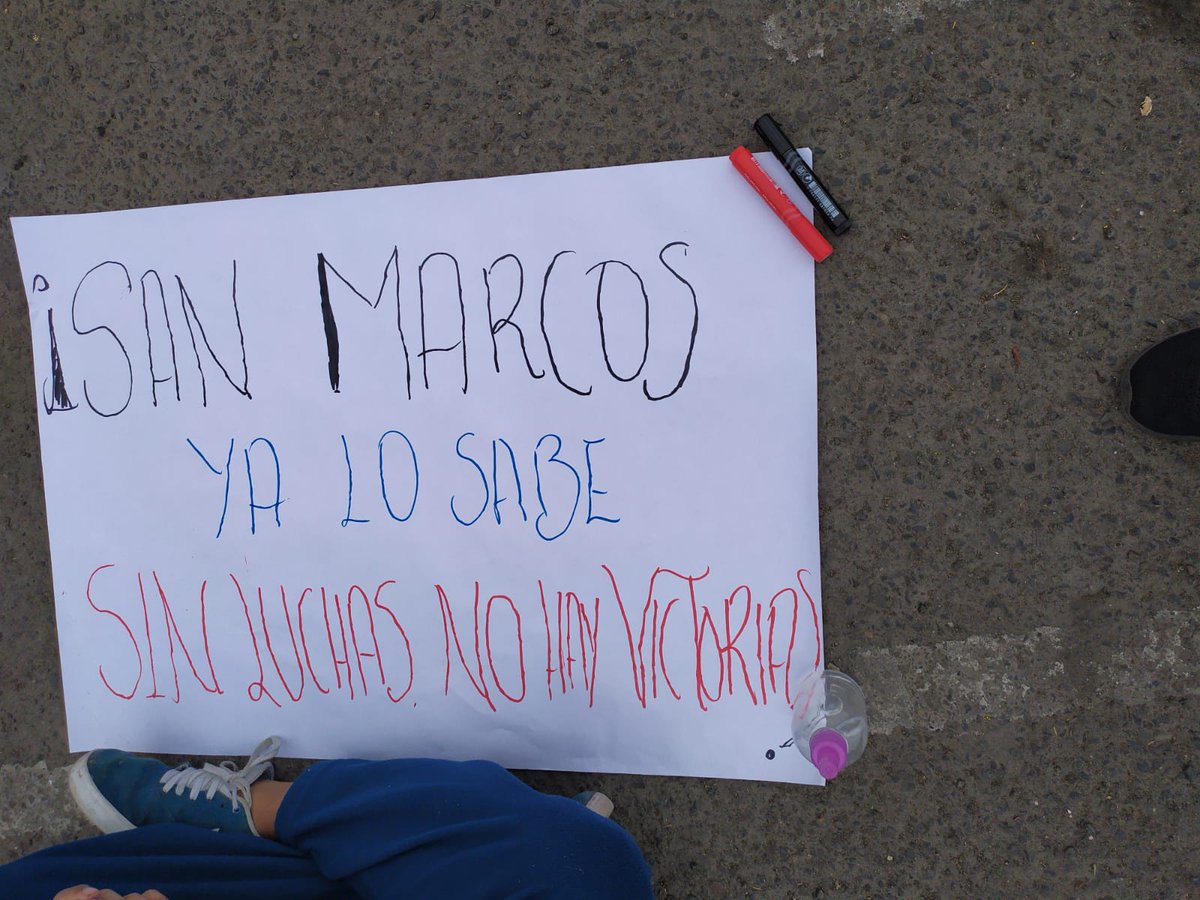 ¡SAN MARCOS
YA LO SABE
SIN LUCHAS, NO HAY VICTORIAS